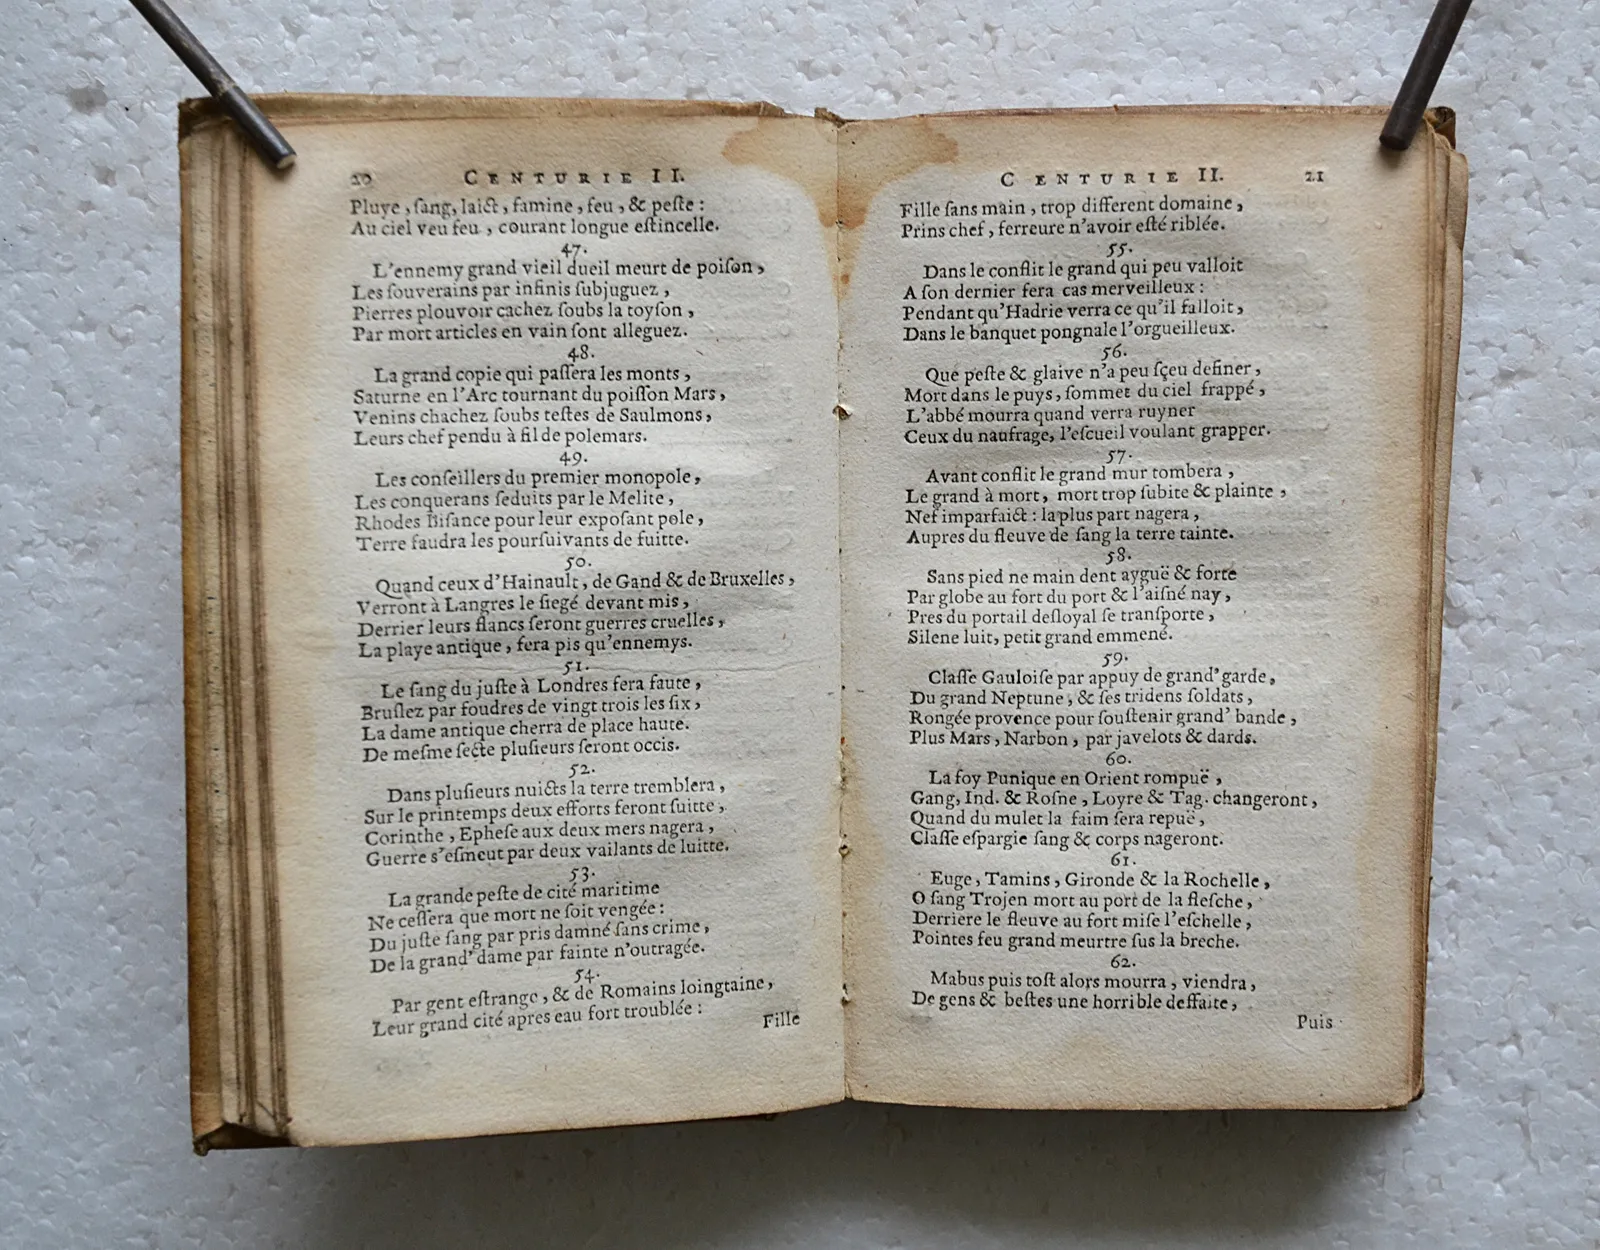 20 CENTURIE II.
Pluye, ſang, laict, famine, feu, & peſte :
Au ciel veu feu, courant longue eſtincelle.
47.
L'ennemy grand vieil dueil meurt de poiſon,
Les ſouverains par infinis ſubjuguez,
Pierres plouvoir cachez ſoubs la toyſon,
Par mort articles en vain ſont alleguez.
48.
La grand copie qui paſſera les monts,
Saturne en l'Arc tournant du poiſſon Mars,
Venins chachez ſoubs teſtes de Saulmons,
Leurs chef pendu à fil de polemars.
49.
Les conſeillers du premier monopole,
Les conquerans ſeduits par le Melite,
Rhodes Biſance pour leur expoſant pole,
Terre faudra les pourſuivants de fuitte.
50.
Quand ceux d'Hainault, de Gand & de Bruxelles,
Verront à Langres le ſiegé devant mis,
Derrier leurs flancs ſeront guerres cruelles,
La playe antique, fera pis qu'ennemys.
51.
Le ſang du juſte à Londres fera faute,
Bruſlez par foudres de vingt trois les ſix,
La dame antique cherra de place haute.
De meſme ſecte pluſieurs ſeront occis.
52.
Dans pluſieurs nuicts la terre tremblera,
Sur le printemps deux efforts feront ſuitte,
Corinthe, Epheſe aux deux mers nagera,
Guerre s'eſmeut par deux vailants de luitte.
53.
La grande peſte de cité maritime
Ne ceſſera que mort ne ſoit vengée :
Du juſte ſang par pris damné ſans crime,
De la grand' dame par fainte n'outragée.
54.
Par gent eſtrange, & de Romains loingtaine,
Leur grand cité apres eau fort troublée :
Fille
CENTURIE II. 21
Fille ſans main, trop different domaine,
Prins chef, ferreure n'avoir eſté riblée.
55.
Dans le conflit le grand qui peu valloit
A ſon dernier fera cas merveilleux :
Pendant qu'Hadrie verra ce qu'il falloit,
Dans le banquet pongnale l'orgueilleux.
56.
Que peſte & glaive n'a peu ſçeu definer,
Mort dans le puys, ſommet du ciel frappé,
L'abbé mourra quand verra ruyner
Ceux du naufrage, l'eſcueil voulant grapper.
57.
Avant conflit le grand mur tombera,
Le grand à mort, mort trop ſubite & plainte,
Nef imparfaict : la plus part nagera,
Aupres du fleuve de ſang la terre tainte.
58.
Sans pied ne main dent ayguë & forte
Par globe au fort du port & l'aiſné nay,
Pres du portail deſloyal ſe tranſporte,
Silene luit, petit grand emmené.
59.
Claſſe Gauloiſe par appuy de grand' garde,
Du grand Neptune, & ſes tridens ſoldats,
Rongée provence pour ſouſtenir grand' bande,
Plus Mars, Narbon, par javelots & dards.
60.
La foy Punique en Orient rompuë,
Gang, Ind. & Roſne, Loyre & Tag. changeront,
Quand du mulet la faim ſera repuë,
Claſſe eſpargie ſang & corps nageront.
61.
Euge, Tamins, Gironde & la Rochelle,
O ſang Trojen mort au port de la fleſche,
Derriere le fleuve au fort miſe l'eſchelle,
Pointes feu grand meurtre ſus la breche.
62.
Mabus puis toſt alors mourra, viendra,
De gens & beſtes une horrible deffaite,
Puis